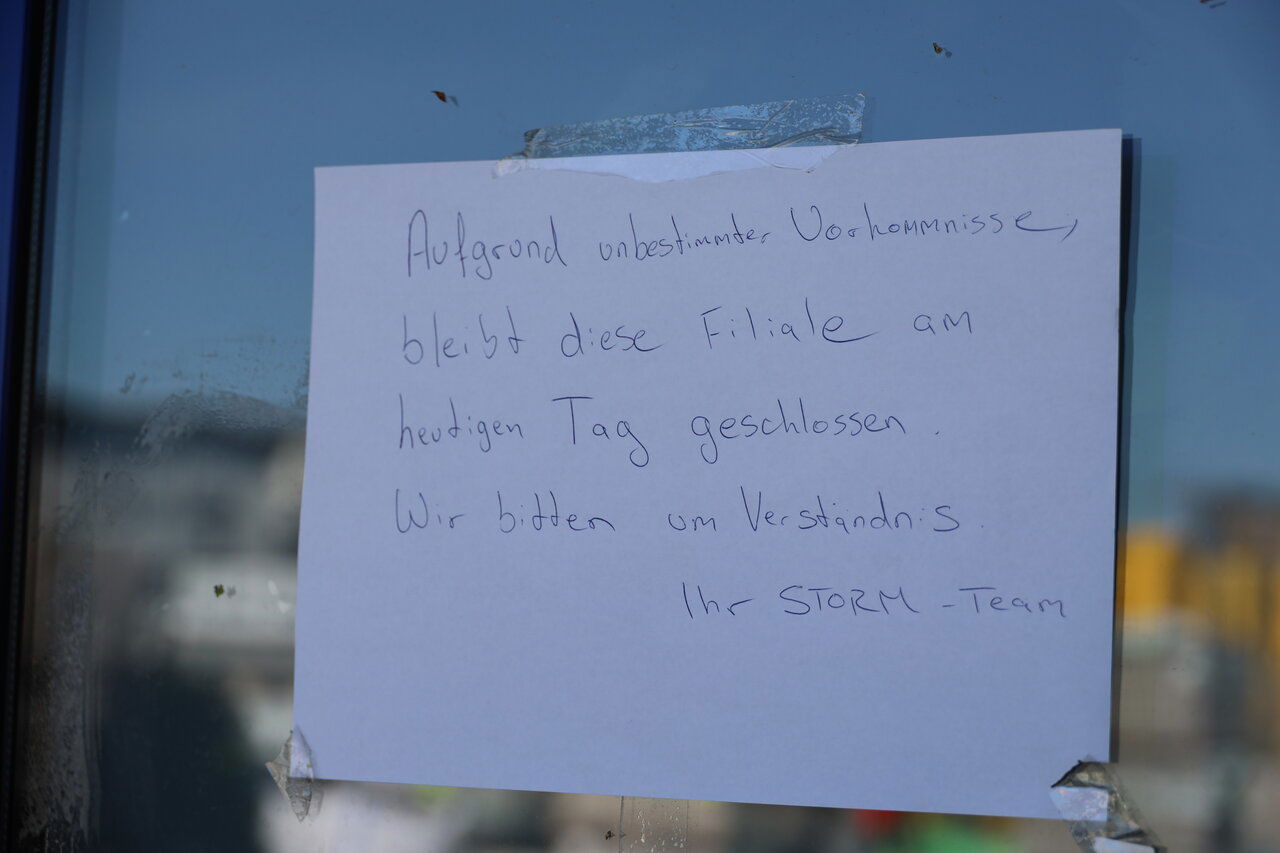 Aufgrund unbestimmter Vorkommnisse,
bleibt diese Filiale am
heutigen Tag geschlossen.
Wir bitten um Verständnis.
Ihr STORM-Team